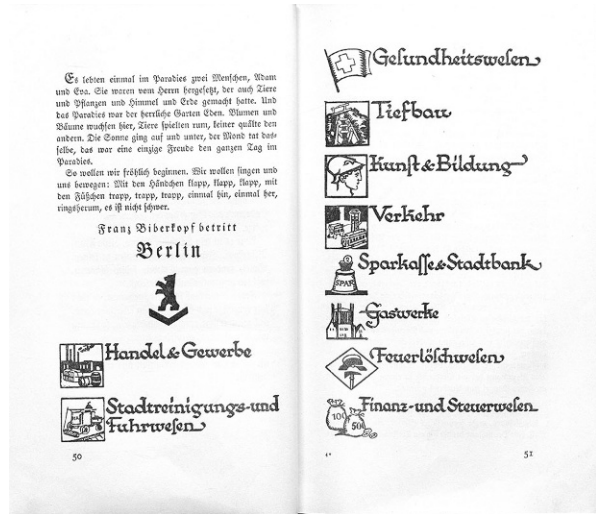 Es lebten einmal im Paradies zwei Menschen, Adam
und Eva. Sie waren vom Herrn hergesetzt, der auch Tiere
und Pflanzen und Himmel und Erde gemacht hatte. Und
das Paradies war der herrliche Garten Eden. Blumen und
Bäume wuchsen hier, Tiere spielten rum, keiner quälte den
andern. Die Sonne ging auf und unter, der Mond tat das-
selbe, das war eine einzige Freude den ganzen Tag im
Paradies.
So wollen wir fröhlich beginnen. Wir wollen singen und
uns bewegen: Mit den Händchen klapp, klapp, klapp, mit
den Füßchen trapp, trapp, trapp, einmal hin, einmal her,
ringsherum, es ist nicht schwer.
Franz Biberkopf betritt
Berlin
Handel & Gewerbe
Stadtreinigungs- und
Fuhrwesen
50
Gesundheitswesen
Tiefbau
Kunst & Bildung
Verkehr
Sparkasse & Stadtbank
SPAR
Gaswerke
Feuerlöschwesen
Finanz- und Steuerwesen
100
50
51